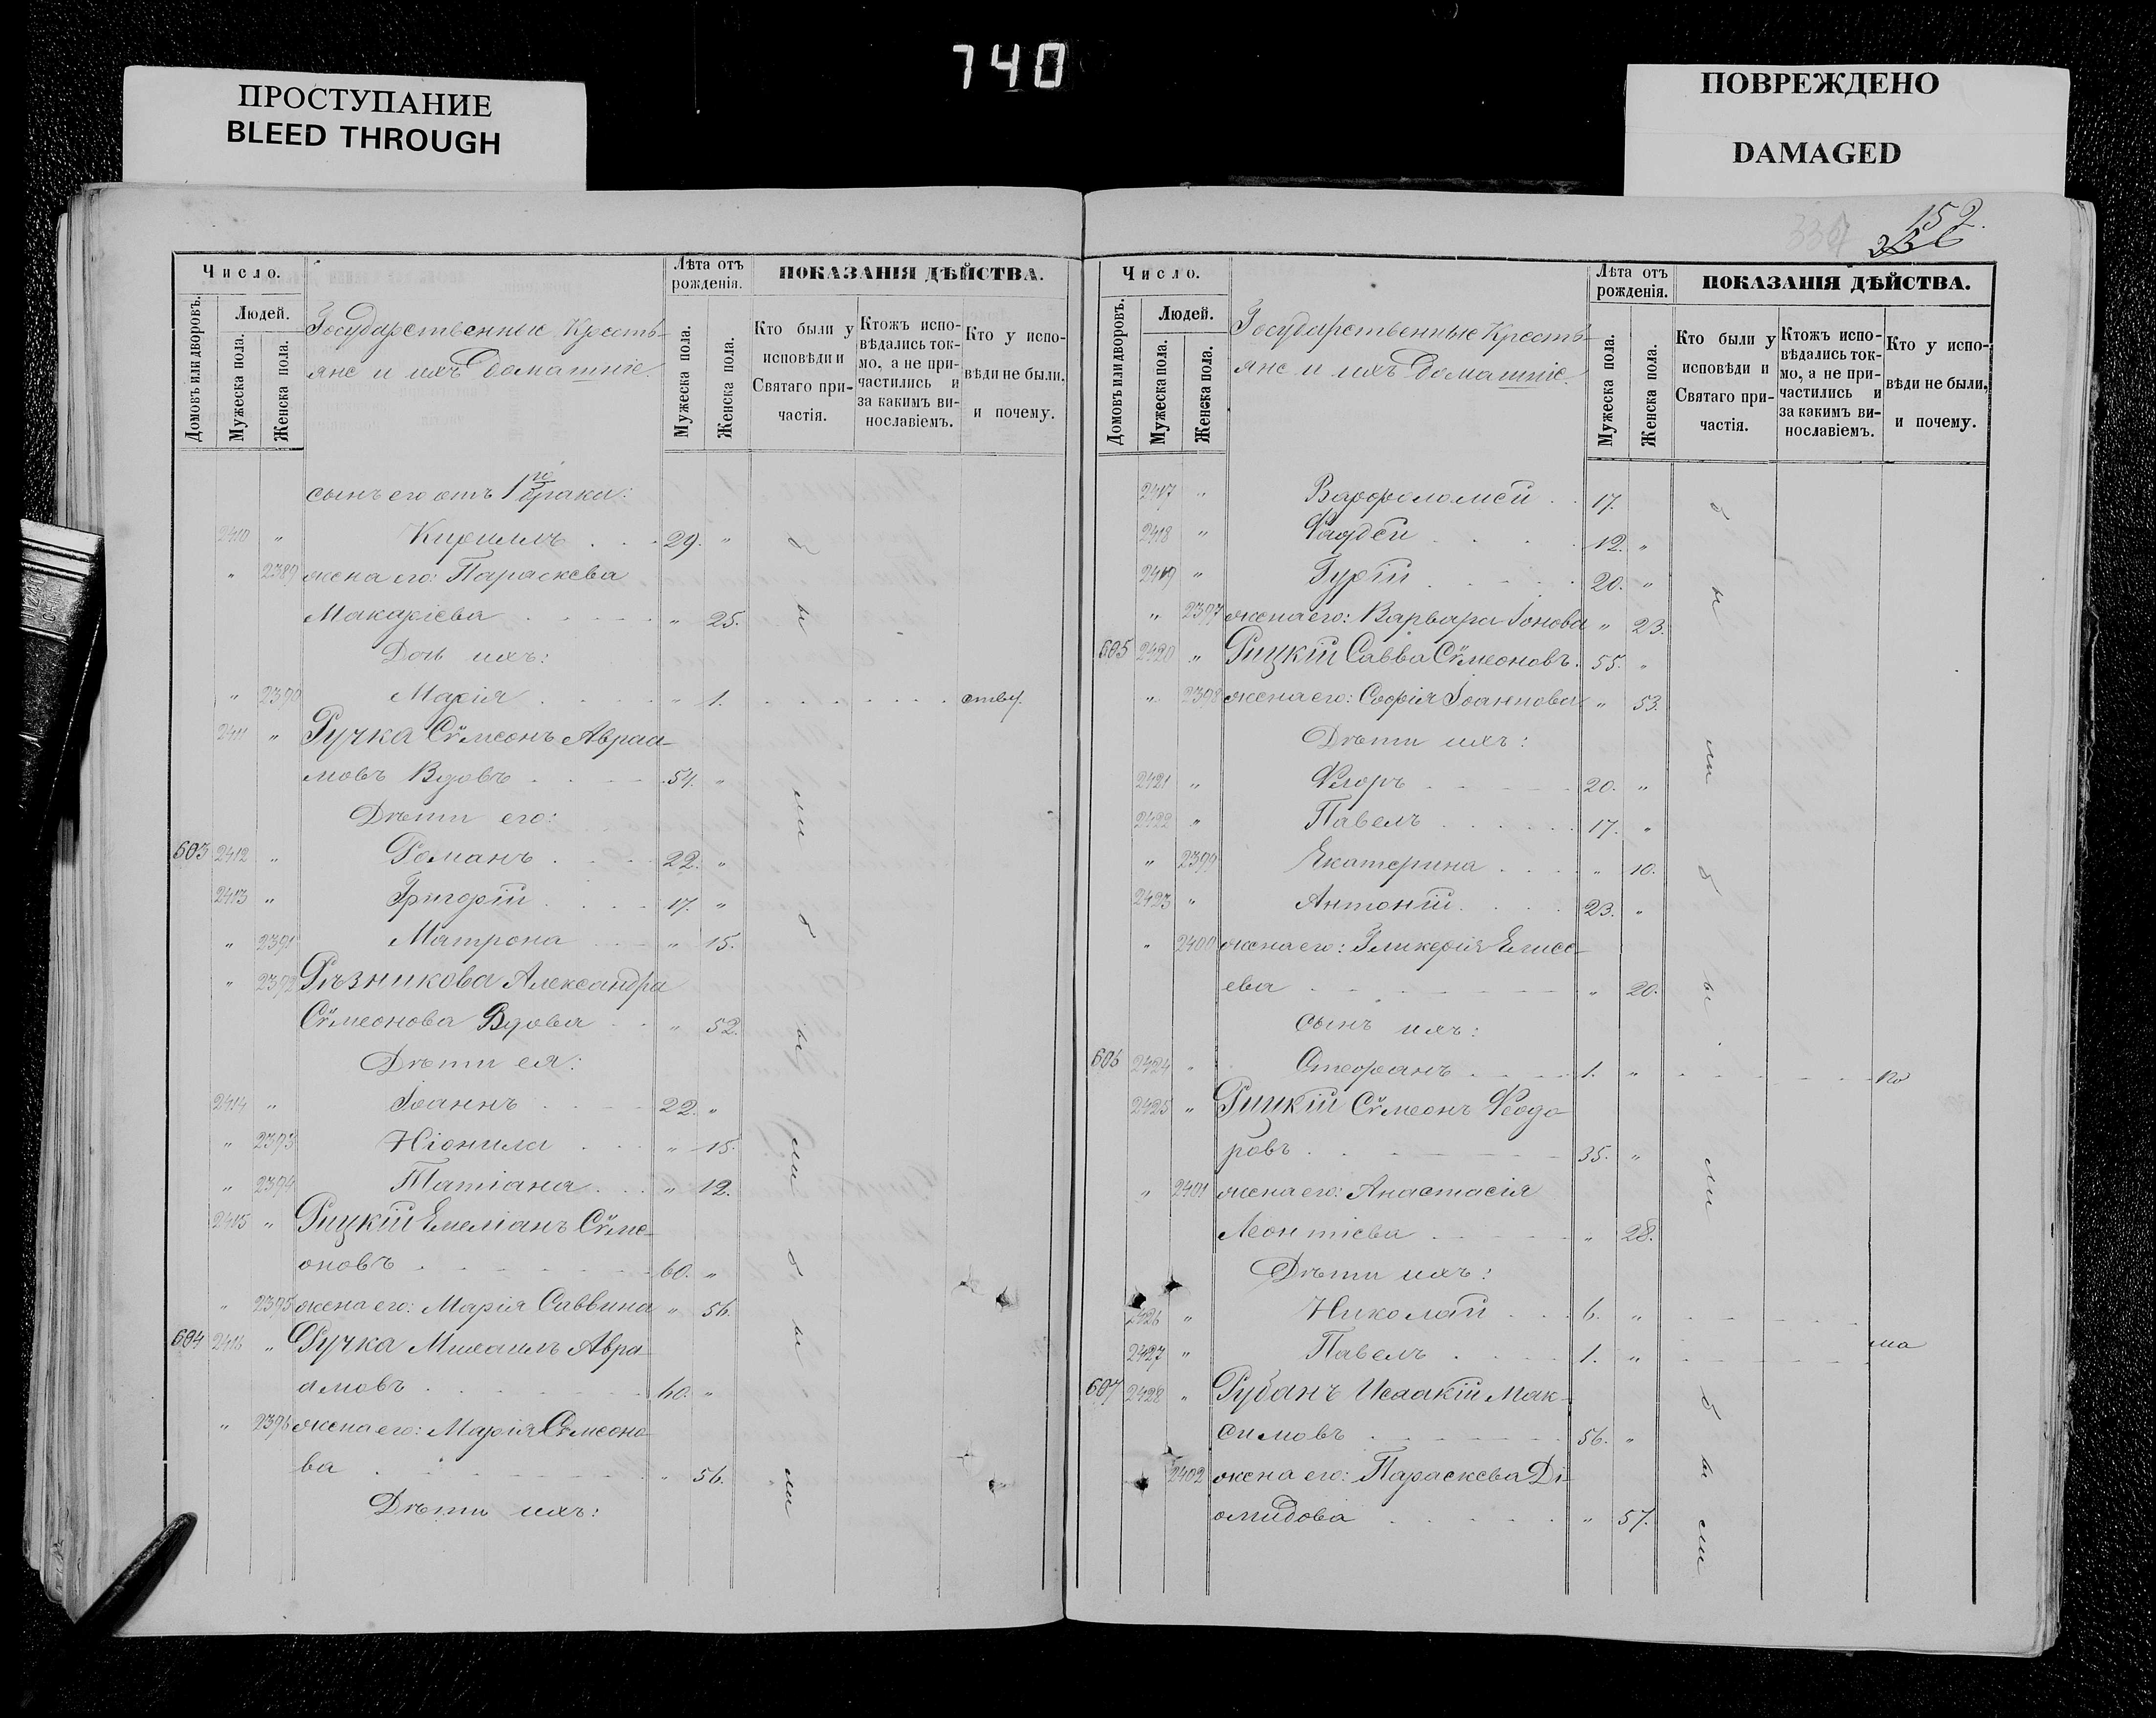 740
ПРОСТУПАНИЕ
BLEED THROUGH
ПОВРЕЖДЕНО
DAMAGED
Число.
Домовъ или дворовъ.
Людей.
Мужеска пола.
Женска пола.
Государственные Кресть-
яне и ихъ домашніе.
Лѣта отъ
рожденія.
Мужеска пола.
Женска пола.
ПОКАЗАНІЯ ДѢЙСТВА.
Кто были у
исповѣди и
Святаго при-
частія.
Ктожъ испо-
вѣдались ток-
мо, а не при-
частились и
за какимъ ви-
нославіемъ.
Кто у испо-
вѣди не были,
и почему.
сынъ его отъ 1го брака:
2410 " Кириллъ . . . 29. "
" 2389 жена его: Параскева
Макаріева . . . . . " 25.
Дочь ихъ:
" 2390 Марія . . . . " 1. . . . . . . .
2411 " Ручка Сѵмеонъ Авраа-
мовъ Вдовъ . . . . 54. "
Дѣти его:
603 2412 " Романъ . . . . 22. "
2413 " Григорій . . . . 17. "
" 2391 Матрона . . . " 15.
" 2392 Рѣзникова Александра
Сѵмеонова Вдова . . " 52.
Дѣти ея:
2414 " Іоаннъ . . . . 22. "
" 2393 Нïонила . . . " 15.
" 2394 Татіана . . . " 12.
2415 " Рицкій Емеліанъ Сѵме-
оновъ . . . . . . 60. "
" 2395 жена его: Марія Саввина " 56.
604 2416 " Ручка Михаилъ Авра-
амовъ . . . . . . 60. "
" 2396 жена его: Марія Сѵмеоно-
ва . . . . . . . " 56.
Дѣти ихъ:
бы
ли
бы
ли
бы
ли
152.
336
Число.
Домовъ или дворовъ.
Людей.
Мужеска пола.
Женска пола.
Государственные Кресть-
яне и ихъ домашніе.
Лѣта отъ
рожденія.
Мужеска пола.
Женска пола.
ПОКАЗАНІЯ ДѢЙСТВА.
Кто были у
исповѣди и
Святаго при-
частія.
Ктожъ испо-
вѣдались ток-
мо, а не при-
частились и
за какимъ ви-
нославіемъ.
Кто у испо-
вѣди не были,
и почему.
2417 " Варфоломей . . 17.
2418 " Фаддей . . . . 12. "
2419 " Гурій . . . . . 20. "
" 2397 жена его: Варвара Іонова " 23.
605 2420 " Рицкій Савва Сѵмеоновъ. 55. "
" 2398 жена его: Софія Іоаннова " 53.
Дѣти ихъ:
2421 " Флоръ . . . . . 20. "
2422 " Павелъ . . . . . 17. "
" 2399 Екатерина . . . . " 10.
2423 " Антоній . . . . 23. "
" 2400 жена его: Гликерія Елисе-
ева . . . . . . . " 20.
сынъ ихъ:
606 2424 " Стефанъ . . . . 1. " . . . . . . . по
2425 " Рицкій Сѵмеонъ Феодо-
ровъ . . . . . . 35. "
" 2401 жена его: Анастасія
Леонтіева . . . . . " 28.
Дѣти ихъ:
2426 " Николай . . . 6. " . . . . . .
2427 " Павелъ . . . . 1. " . . . . . .
607 2428 " Рубанъ Исаакій Мак-
симовъ . . . . . . 56. "
2402 жена его: Параскева Ді-
омидова . . . . . " 57.
бы
ли
бы
ли
бы
ли